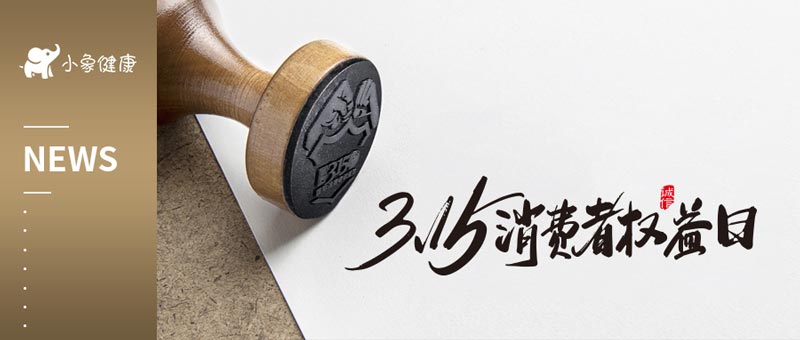 小象健康
NEWS
315
3.15消费者权益日
诚信